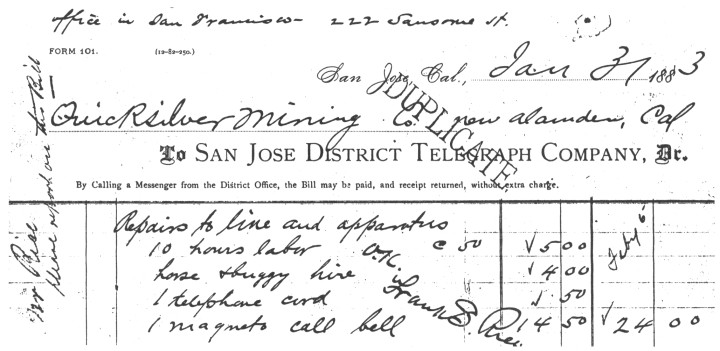 office in San Francisco - 222 Sansome St.
FORM 101. (12-82-250.)
San Jose, Cal., Jan 31 1883
DUPLICATE
Quicksilver Mining Co. New Almaden, Cal
To SAN JOSE DISTRICT TELEGRAPH COMPANY, Dr.
By Calling a Messenger from the District Office, the Bill may be paid, and receipt returned, without extra charge.
Repairs to line and apparatus
10 hours labor c 50 √ 5 00
horse & buggy hire √ 4 00
1 telephone cord √ 50
1 magneto call bell 14 50 √ 24 00
O.K.
Frank B
Feby 6
Mr Rice
please report on this Bill